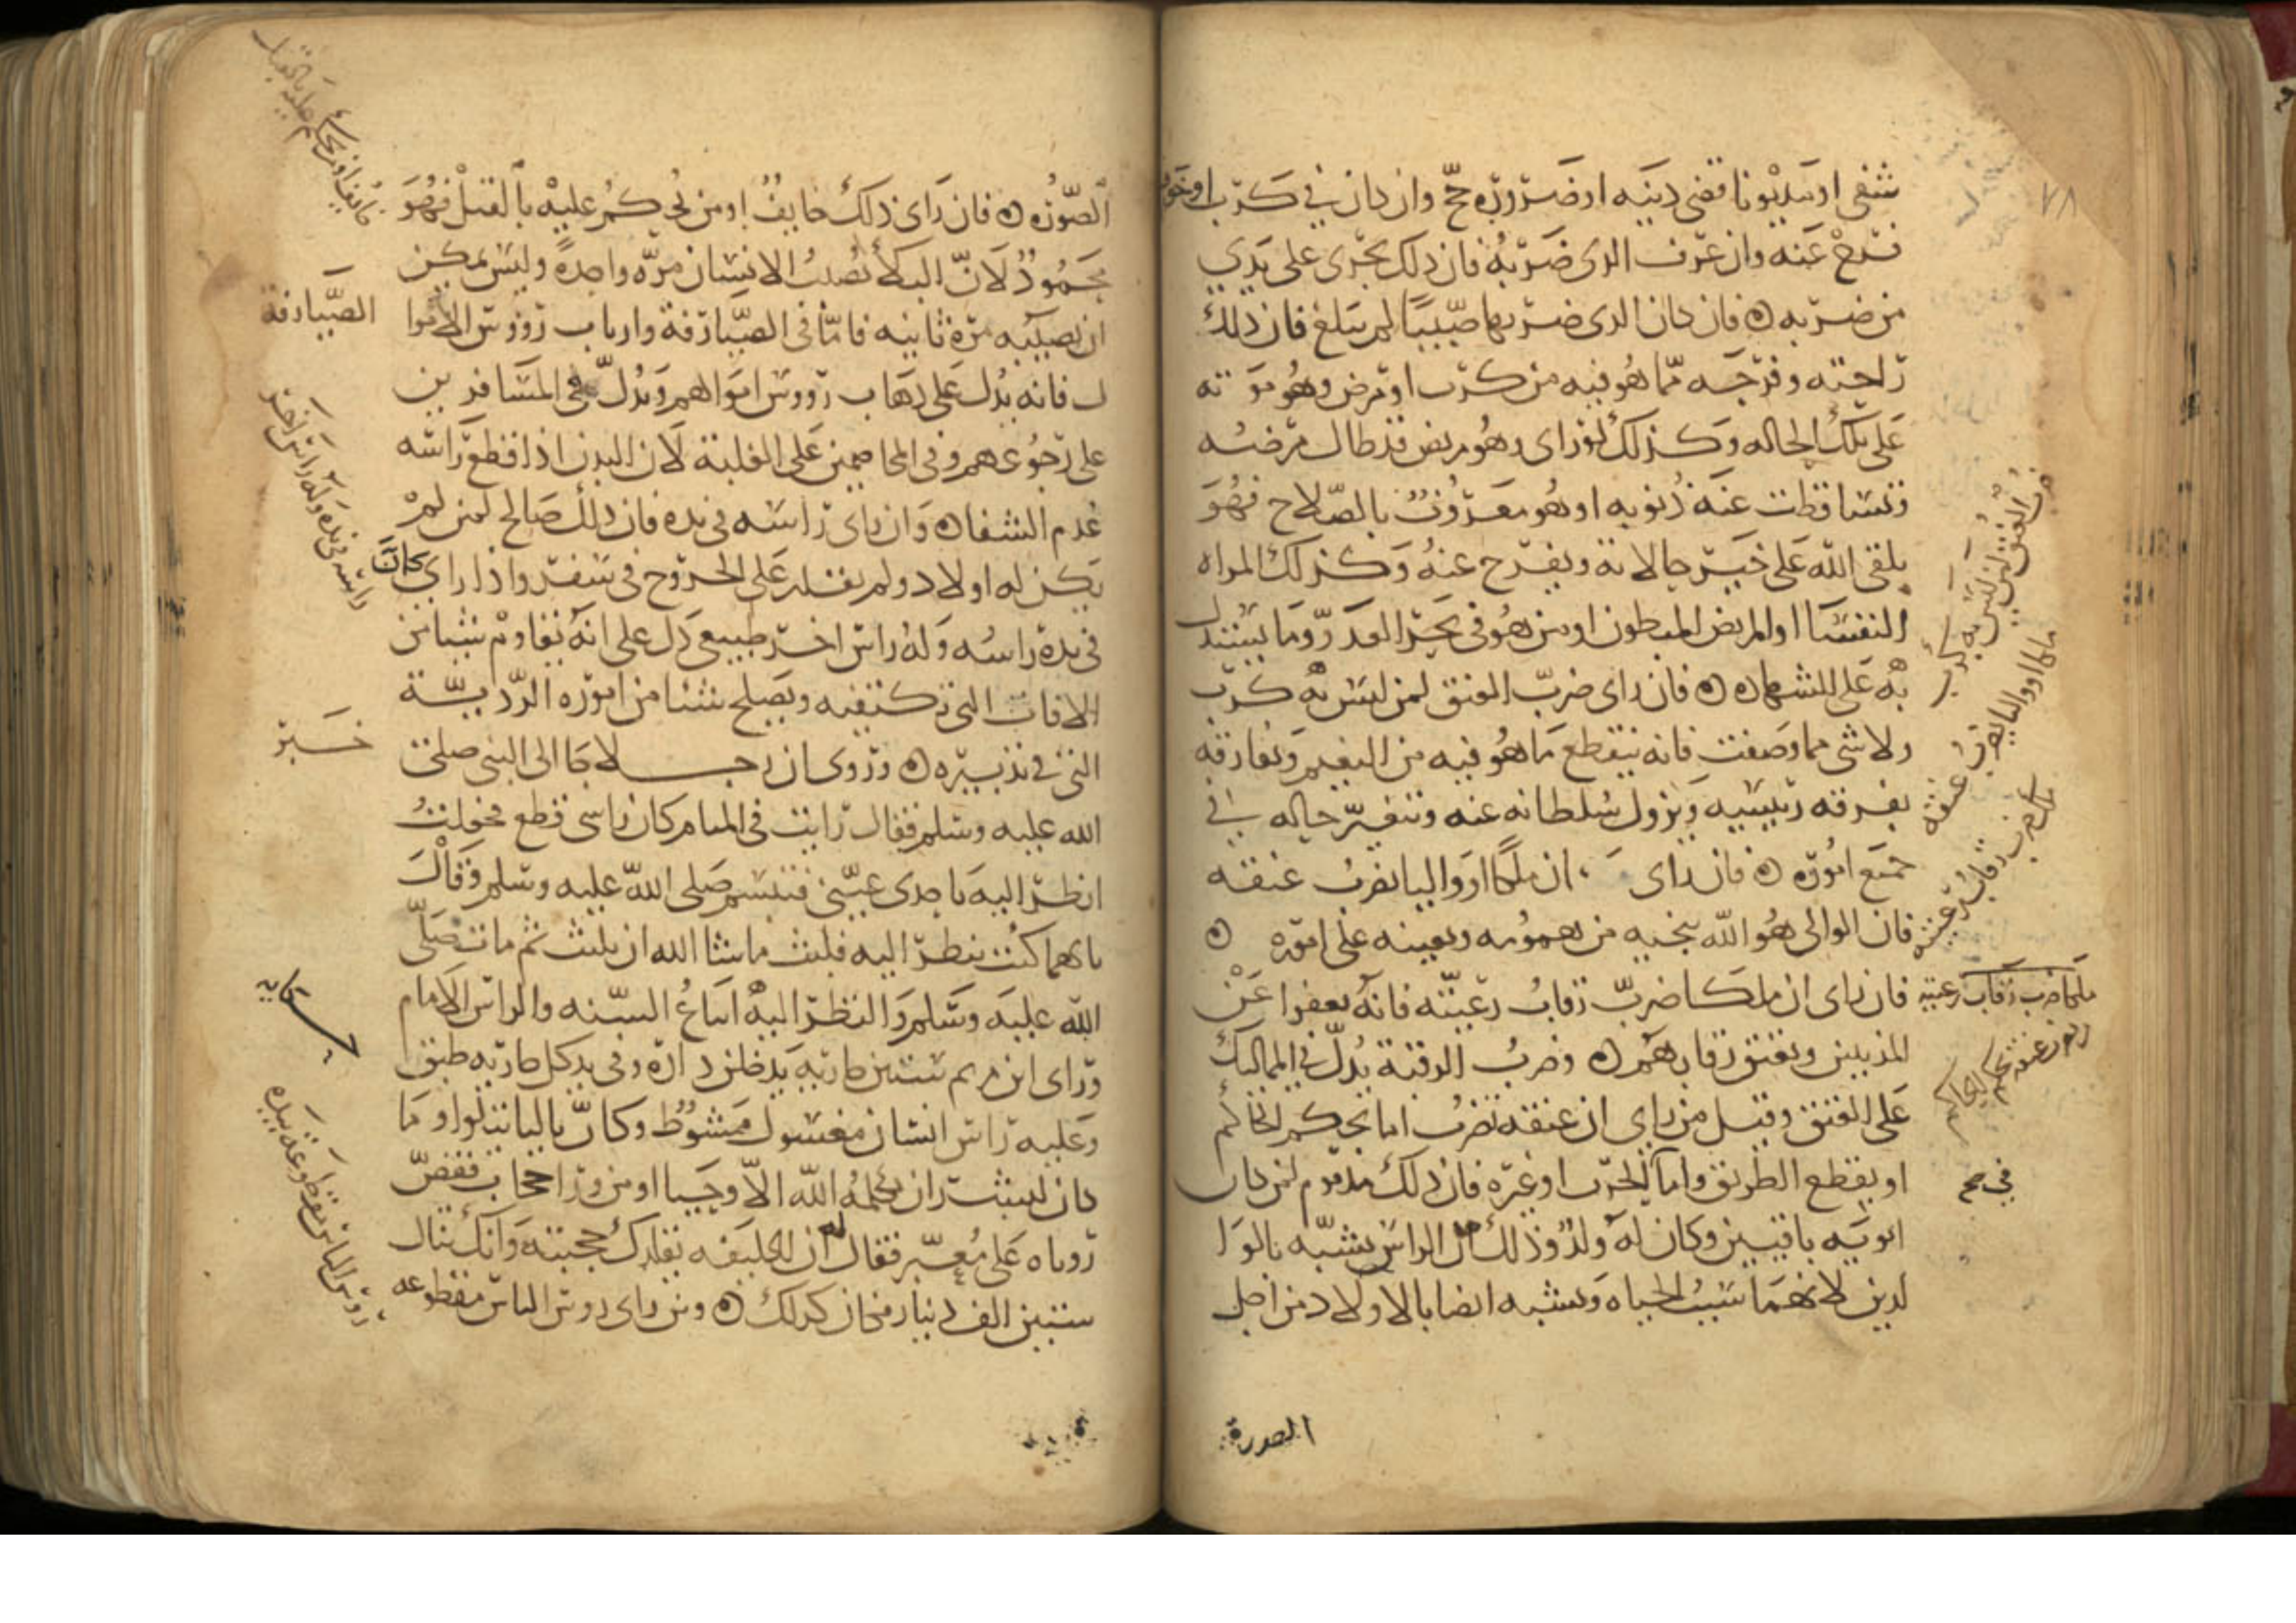 ٧٨
شفي او مديونا قضى دينه او ضرورة حج وان كان في كرب او خوف
فرج عنه وان عرف الذي ضربه فان ذلك يجري على يدي
من ضربه ه فان كان الذي ضربها صبيا لم يبلغ فان ذلك
راحته وفرجه مما هو فيه من كرب او مرض وهو موته
على تلك الحاله وكذلك لو راى وهو مريض قد طال مرضه
وتساقطت عنه ذنوبه او هو معروف بالصلاح فهو
يلقى الله على خير حالاته ويفرج عنه وكذلك المراه
النفسا او المريض المبطون او من هو في بحر العدو وما يستدل
به على الشهاده ه فان راى ضرب العنق لمن ليس به كرب
ولا شي مما وصفت فانه ينقطع ما هو فيه من النعيم ويفارقه
بفرقه رئيسه ويزول سلطانه عنه وتتغير حاله في
جميع اموره ه فان راى ان ملكا او واليا يضرب عنقه
فان الوالي هو الله ينجيه من همومه ويعينه على اموره ه
فان راى ان ملكا ضرب رقاب رعيته فانه يعفوا عن
المذنبين ويعتق رقابهم ه وضرب الرقبة يدل في المماليك
على العتق وقيل من راي ان عنقه تضرب اما بحكم الحاكم
او بقطع الطريق واما في الحرب او غيره فان ذلك مذموم لمن كان
ابويه باقيين وكان له ولد وذلك ان الراس يشبه بالوا
لدين لانهما سبب الحياه ويشبه ايضا بالاولاد من اجل
الصورة
ضرب العنق لمن ليس به كرب
ملكا او واليا يضرب عنقه
ملك ضرب رقاب رعيته
ملكا ضرب رقاب رعيته
ضرب عنقه بحكم الحاكم
الصوره ه فان راى ذلك خايف او من يحكم عليه بالقتل فهو
محمود لان البلا تصيب الانسان مرة واحدة وليس يمكن
ان تصيبه مرة ثانيه فاما في الصيارفة وارباب رؤوس الاموا
ل فانه يدل على ذهاب رووس اموالهم ويدل في المسافرين
على رجوعهم وفي المخاصمين على الغلبة لان البدن اذا قطع راسه
عدم الشفا ه وان راى راسه في يده فان ذلك صالح لمن لم
يكن له اولاد ولم يقدر على الخروج في سفر واذا راي كان
في يده راسه وله راس اخر طبيعي دل على انه يقاوم شيا من
الافات التي تكتنفه ويصلح شيئا من اموره الرديـة
التي في تدبيره ه وروي ان رجلا جا الى النبي صلى
الله عليه وسلم فقال رايت في المنام كان راسي قطع فجعلت
انظر اليه باحدى عيني فتبسم صلى الله عليه وسلم وقال
بايهما كنت تنظر اليه فلبث ما شا الله ان يلبث ثم مات صلى
الله عليه وسلم والنظر اليه اتباع السنه والراس الامام
وراى ابن مريم ستين جاريه يدخلن داره وفي يد كل جاريه طبق
وعليه راس انسان مغسول ممشوط وكان تاليا يتلوا وما
كان لبشر ان يكلمه الله الا وحيا او من ورا حجاب فقص
روياه على معبر فقال له ان الخليفه يقلدك حجبته وانك تنال
ستين الف دينار فكان كذلك ه ومن راى روس الناس مقطوعه
خايف او من يحكم عليه بالقتل
الصيارفة
راسه في يده وله راس اخر
خبر
حكايه
روس الناس مقطوعه بيده